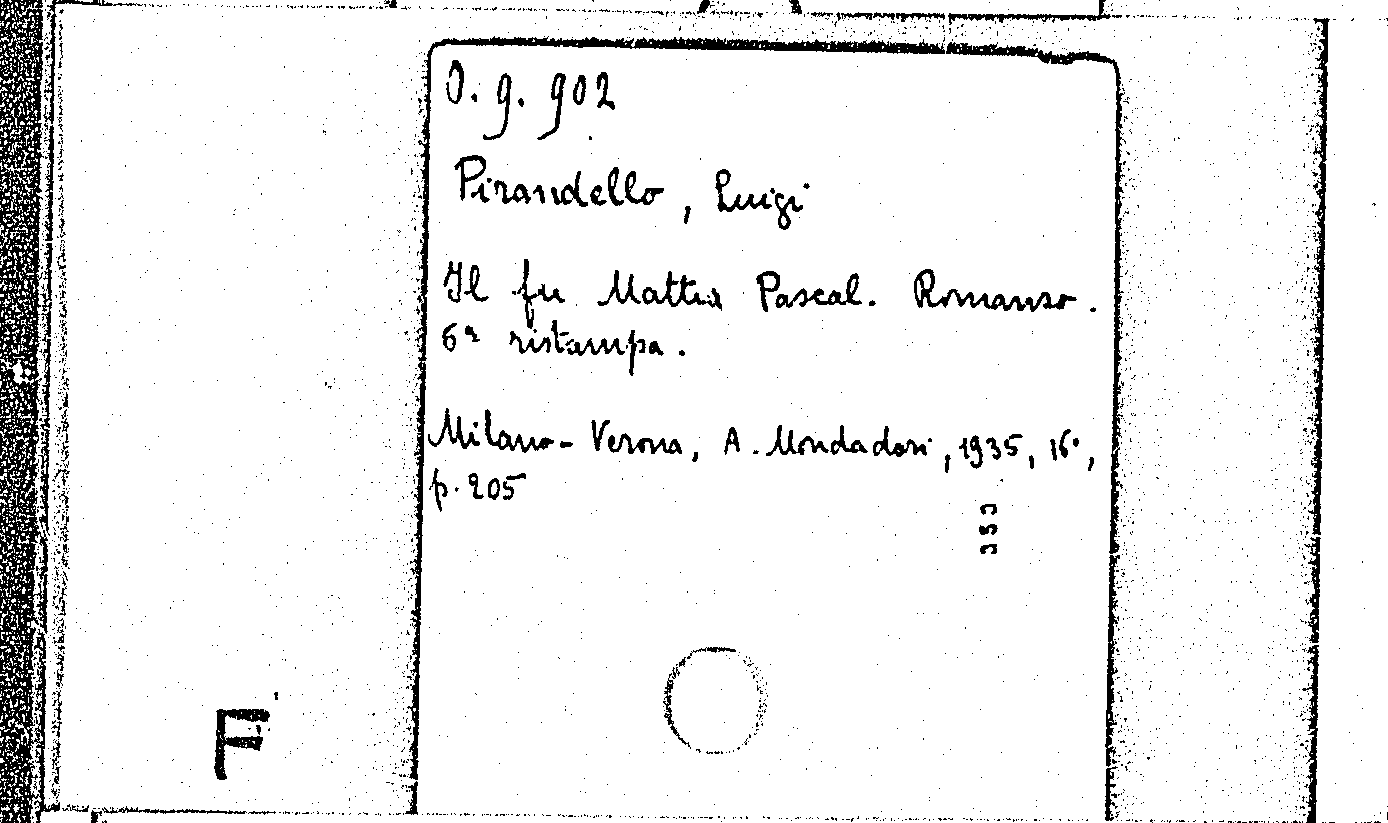 O. g. 902
Pirandello, Luigi
Il fu Mattia Pascal. Romanzo.
6ª ristampa.
Milano-Verona, A. Mondadori, 1935, 16°,
p. 205
F